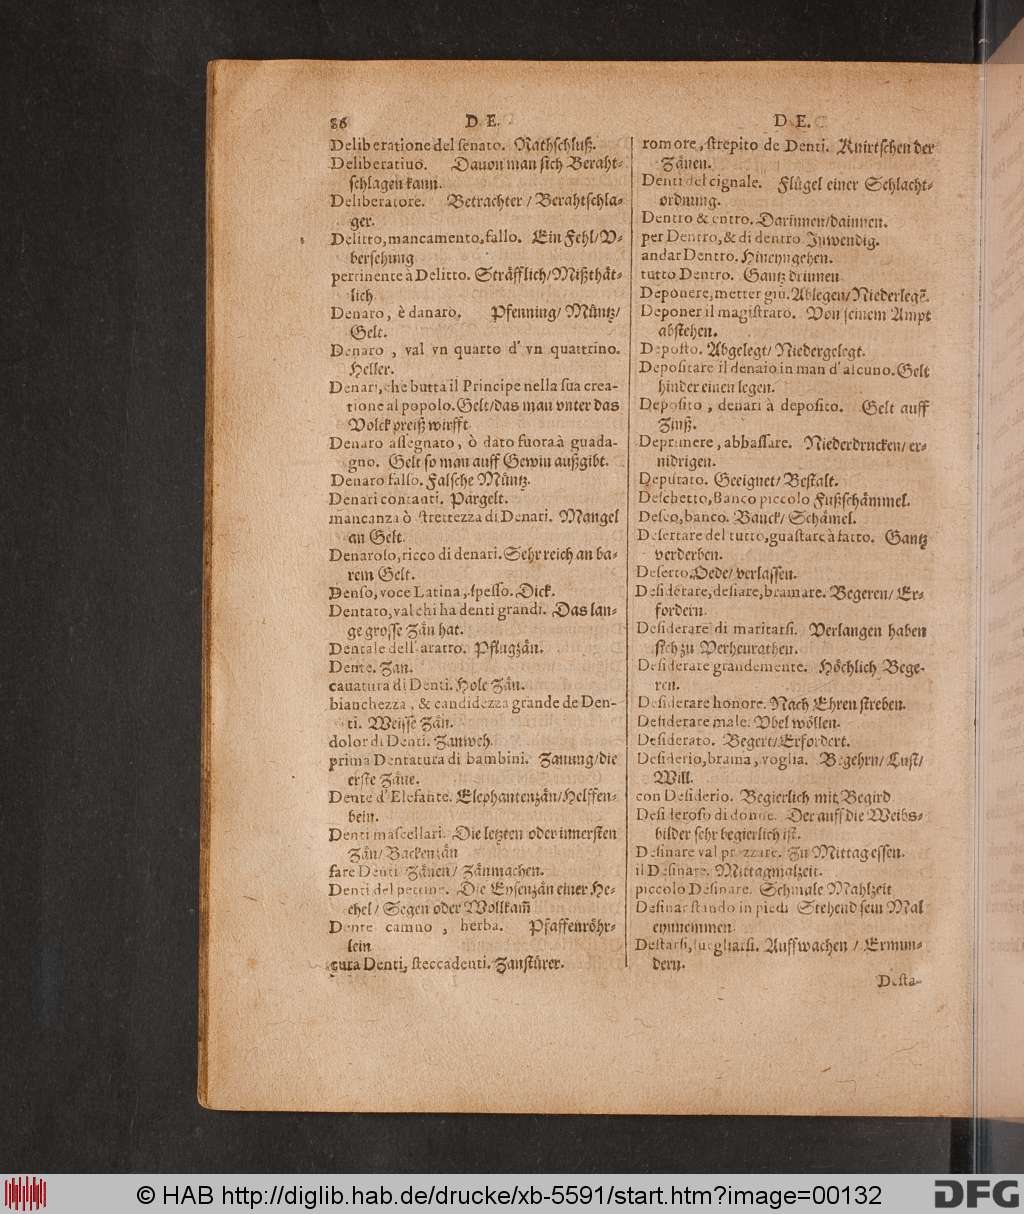 86 D E. D E.
Deliberatione del senato. Rathschluß.
Deliberatiuó. Dauon man sich Beraht-
schlagen kann.
Deliberatore. Betrachter / Berahtschla-
ger.
Delitto, mancamento, fallo. Ein Fehl/V-
bersehung
pertinente à Delitto. Sträfflich/Mißthät-
lich
Denaro, è danaro. Pfenning/ Müntz/
Gelt.
Denaro, val vn quarto d' vn quattrino.
Heller.
Denari, che butta il Principe nella sua crea-
tione al popolo. Gelt/das man vnter das
Volck preiß wirfft
Denaro assegnato, ò dato fuora à guada-
gno. Gelt so man auff Gewin außgibt.
Denaro falso. Falsche Müntz.
Denari contanti. Pargelt.
mancanza ò strettezza di Denari. Mangel
an Gelt.
Denaroso, ricco di denari. Sehr reich an ba-
rem Gelt.
Denso, voce Latina, spesso. Dick.
Dentato, val chi ha denti grandi. Das lan-
ge grosse Zän hat.
Dentale dell' aratro. Pflugzän.
Dente. Zan.
cauatura di Denti. Hole Zän.
bianchezza, & candidezza grande de Den-
ti. Weisse Zän.
dolor di Denti. Zanweh.
prima Dentatura di bambini. Zanung/die
erste Zäne.
Dente d' Elefante. Elephantenzän/Helffen-
bein.
Denti mascellari. Die letzten oder innersten
Zän/ Backenzän
fare Denti Zänen/ Zänmachen.
Denti del pettine. Die Eysenzän einer He-
chel/ Segen oder Wollkam̃
Dente camno, herba. Pfaffenröhr-
lein
cura Denti, steccadenti. Zanstürer.
romore, strepito de Denti. Knirtschen der
Zänen.
Denti del cignale. Flügel einer Schlacht-
ordnung.
Dentro & entro. Darinnen/dainnen.
per Dentro, & di dentro Inwendig.
andar Dentro. Hineyngehen.
tutto Dentro. Gantz drinnen
Deponere, metter giù. Ablegen/Niederlegẽ.
Deponer il magistrato. Von seinem Ampt
abstehen.
Deposto. Abgelegt/ Niedergelegt.
Depositare il denaio in man d' alcuno. Gelt
hinder einen legen.
Deposito, denari à deposito. Gelt auff
Zinß.
Deprimere, abbassare. Niederdrucken/er-
nidrigen.
Deputato. Geeignet/ Bestalt.
Deschetto, Banco piccolo Fußschämmel.
Desco, banco. Banck/ Schämel.
Desertare del tutto, guastare à fatto. Gantz
verderben.
Deserto. Oede/ verlassen.
Desiderare, desiare, bramare. Begeren/ Er-
fordern.
Desiderare di maritarsi. Verlangen haben
sich zu Verheurathen.
Desiderare grandemente. Höchlich Bege-
ren.
Desiderare honore. Nach Ehren streben.
Desiderare male. Vbel wöllen.
Desiderato. Begert/Erfordert.
Desiderio, brama, voglia. Begehrn/ Lust/
Will.
con Desiderio. Begierlich mit Begird
Desideroso di donne. Der auff die Weibs-
bilder sehr begierlich ist.
Desinare val przzare. Zu Mittag essen.
il Desinare. Mittagmalzeit.
piccolo Desinare. Schmale Mahlzeit
Desinar stando in piedi Stehend sein Mal
eynnemmen
Destarsi, suegliarsi. Auffwachen / Ermun-
dern.
Desta-
© HAB http://diglib.hab.de/drucke/xb-5591/start.htm?image=00132
DFG